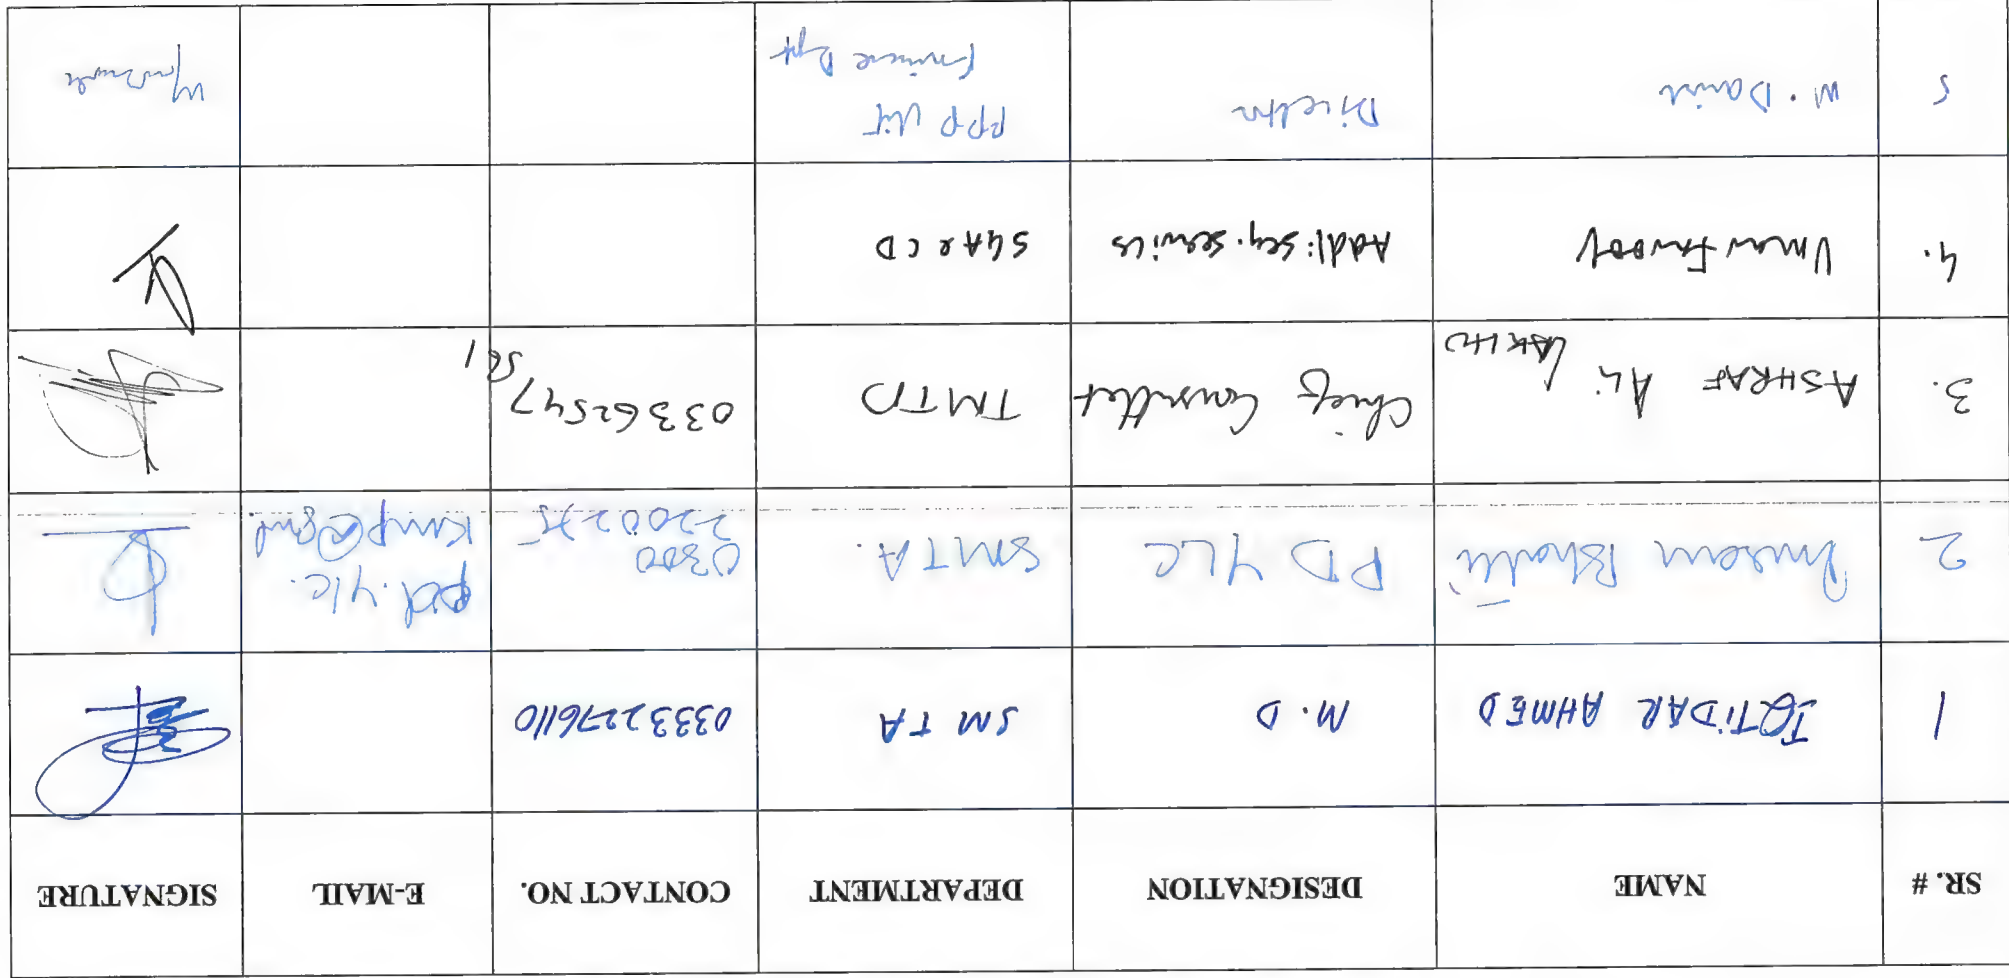 SR. # NAME DESIGNATION DEPARTMENT CONTACT NO. E-MAIL SIGNATURE
1 IQTIDAR AHMED M.D SMTA 03332276110
2 Bhatti PD YLC SMTA. 0300
2200275
pd.ylc.
3. ASHRAF Ali LAKHO Chief Consultet TMTD 03362547
561
4. Umar Farooq Addl: Sey. services SGA & CD
5 M. Danish Director PPP Unit
Finance Dept